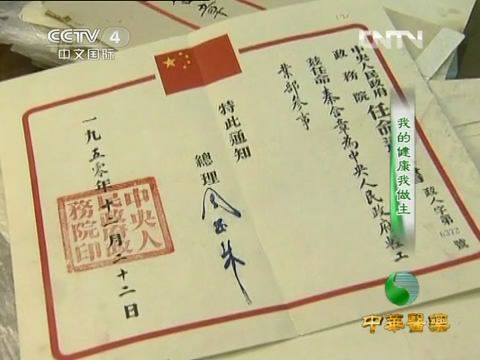 CCTV 4
中文国际
CNTV
中央人民政府
政務院
任命
書
政人字第
號
茲任命秦含章為中央人民政府輕工
業部參事
特此通知
總理
周恩來
一九五〇年十二月二十二日
中央人
民政府政
務院印
我的健康我做主
中華醫藥